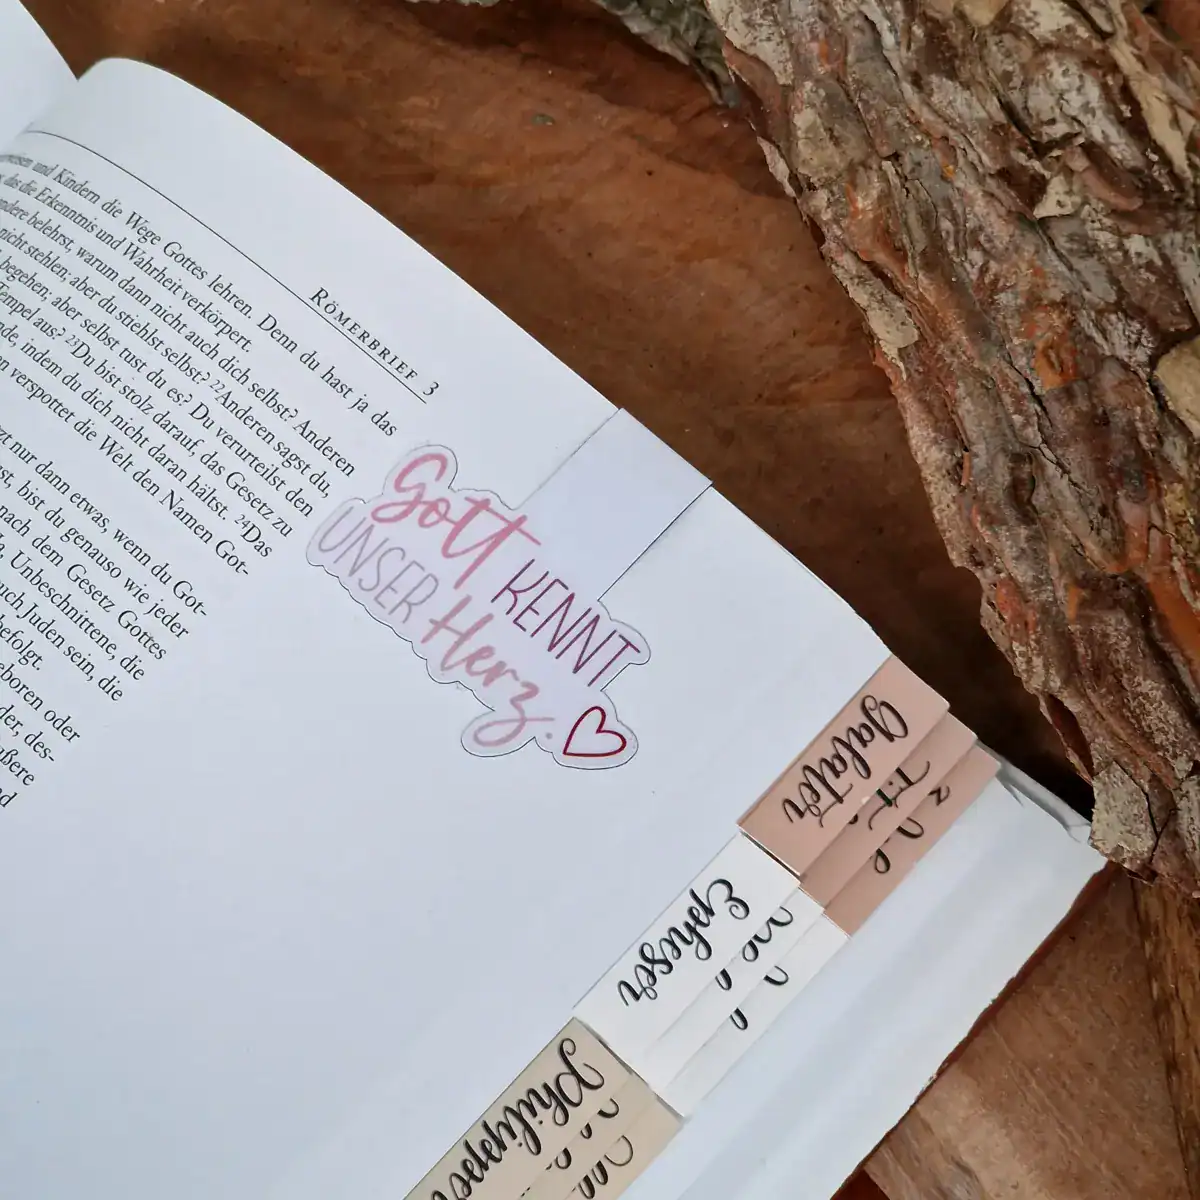 RÖMERBRIEF 3
und Kindern die Wege Gottes lehren. Denn du hast ja das
das die Erkenntnis und Wahrheit verkörpert.
belehrst, warum dann nicht auch dich selbst? Anderen
nicht stehlen; aber du stiehlst selbst? 22Anderen sagst du,
begehen; aber selbst tust du es? Du verurteilst den
Tempel aus? 23Du bist stolz darauf, das Gesetz zu
indem du dich nicht daran hältst. 24Das
verspottet die Welt den Namen Got-
nur dann etwas, wenn du Got-
bist du genauso wie jeder
nach dem Gesetz Gottes
Unbeschnittene, die
Juden sein, die
befolgt.
oder
der, des-
Gott KENNT
UNSER Herz.
Galater
Epheser